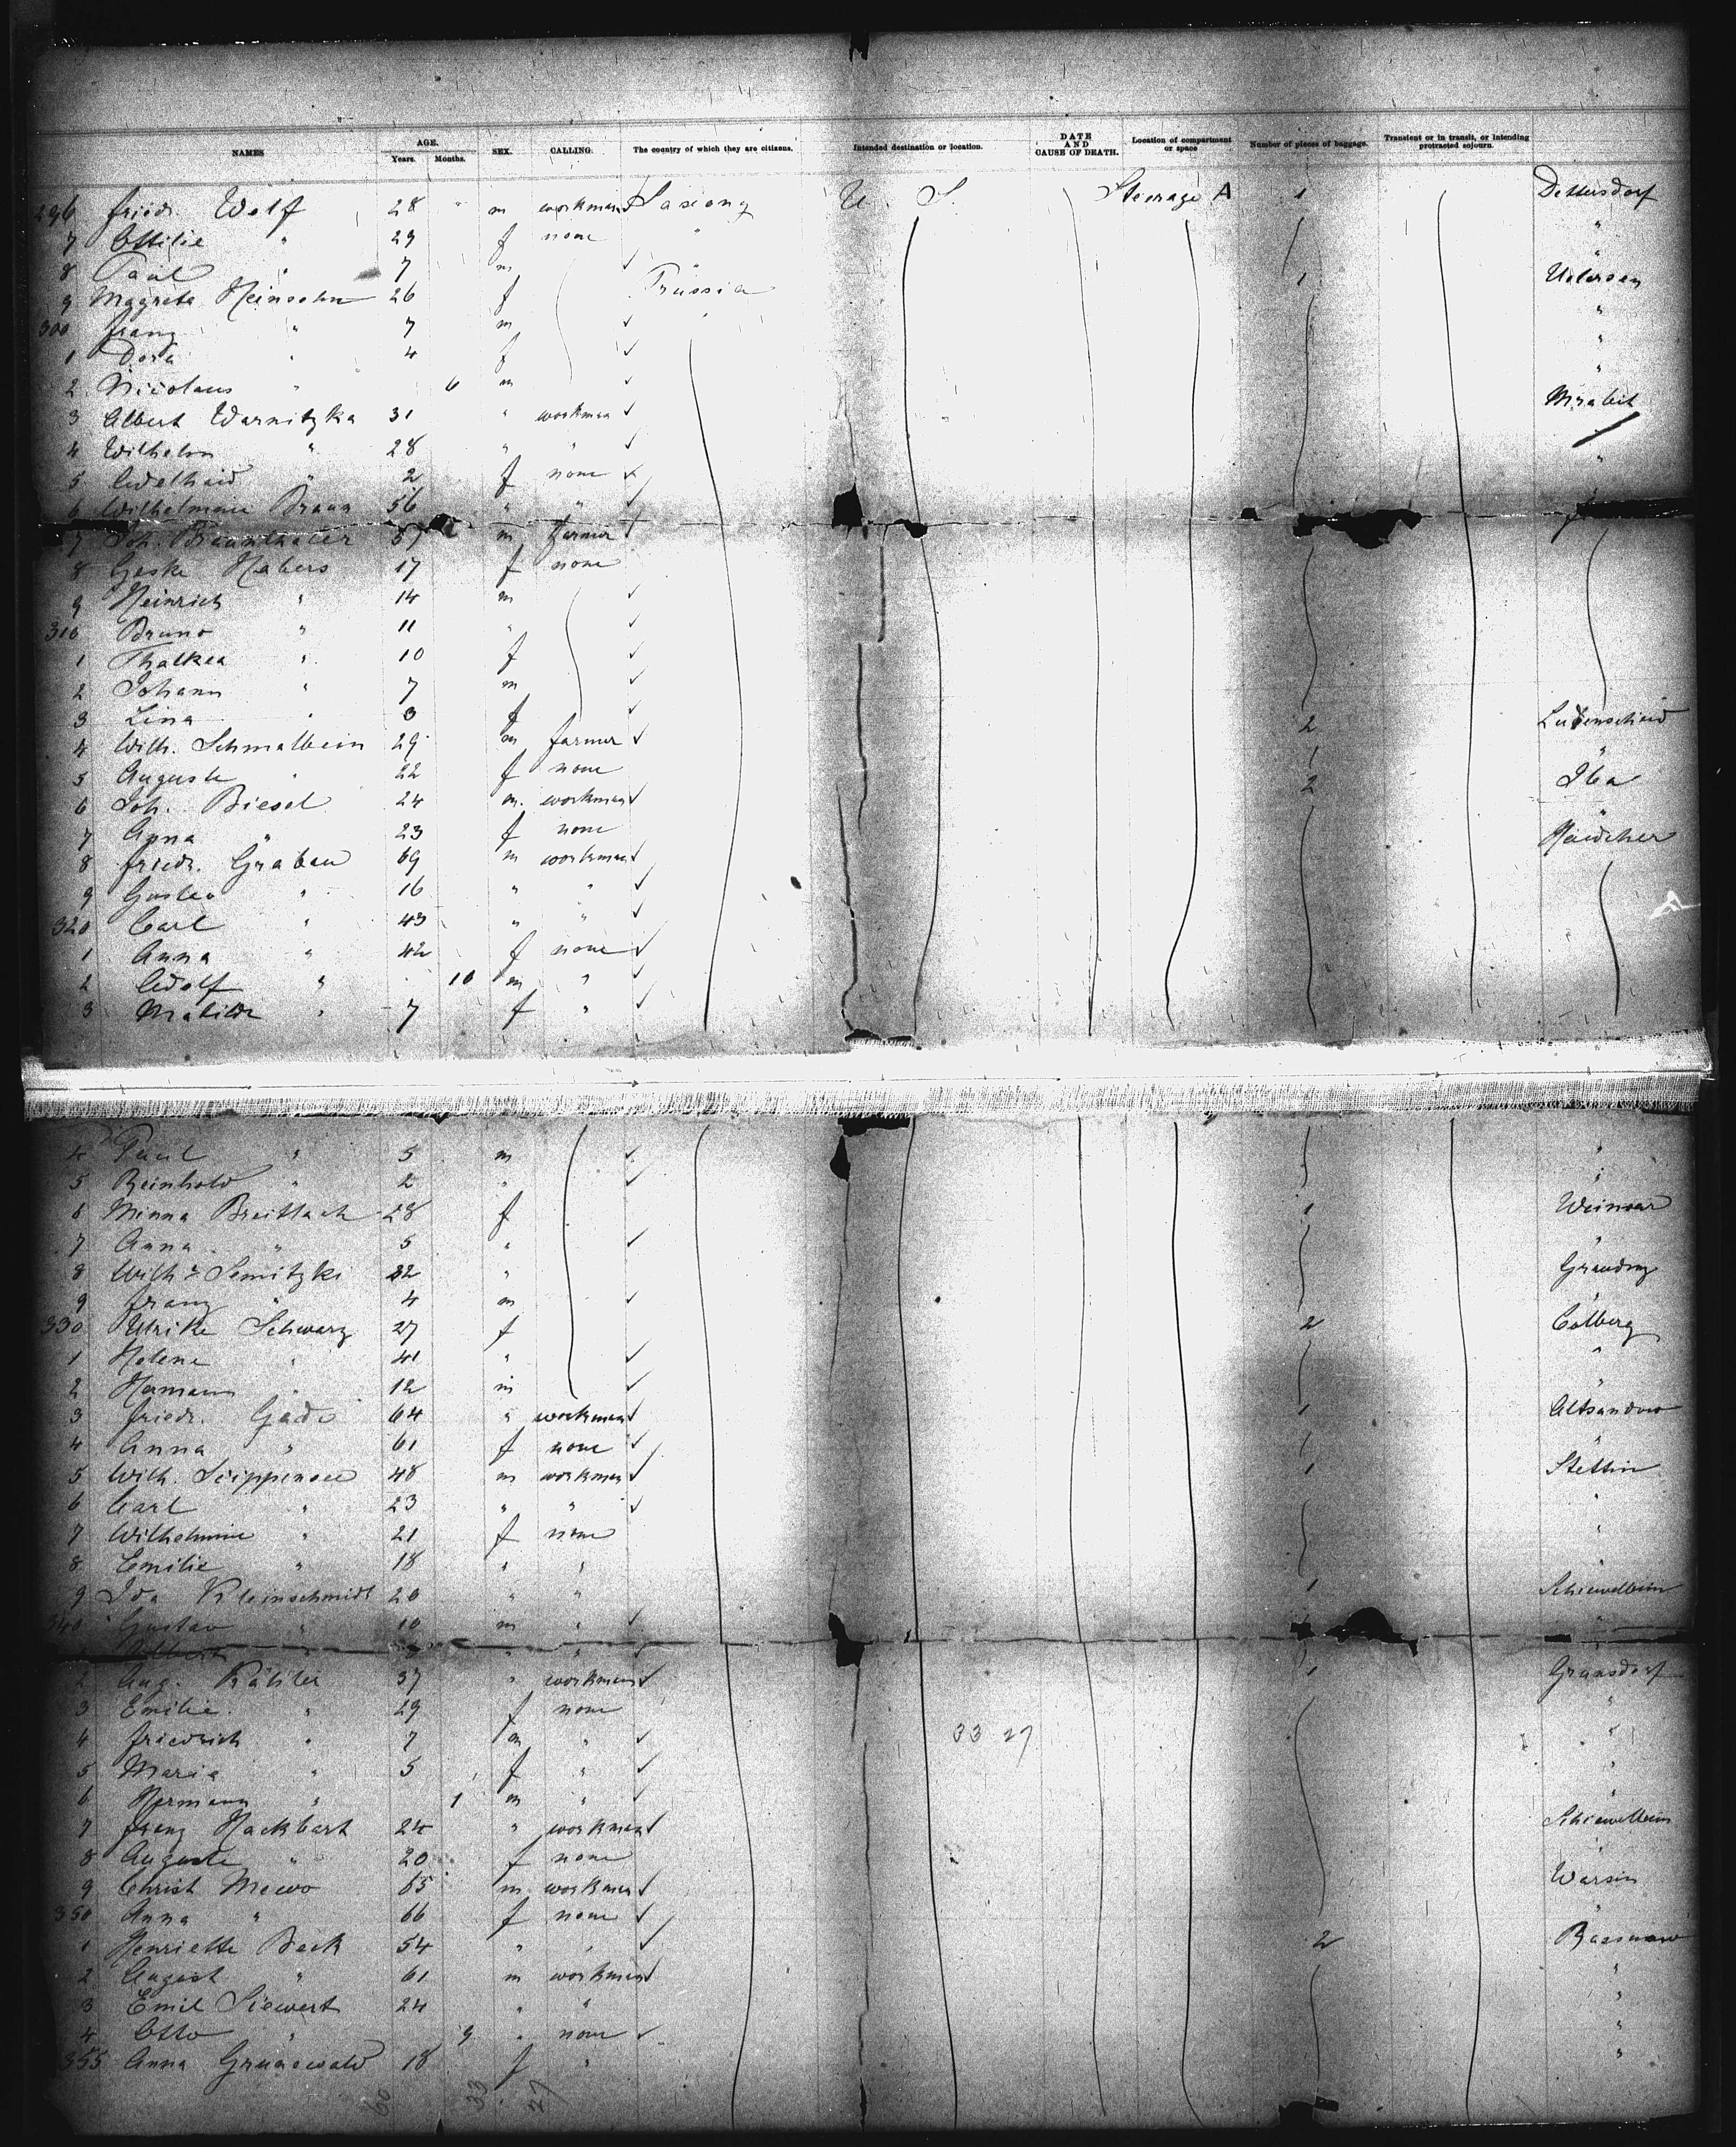 NAMES AGE. Years. Months. SEX. CALLING. The country of which they are citizens. Intended destination or location. DATE AND CAUSE OF DEATH. Location of compartment or space Number of pieces of baggage. Transient or in transit, or intending protracted sojourn.
296 Friedr. Wolf 28 m workman U. S. Steerage A 1
7 Ottilie " 29 f none " "
8 Paul " 7 m "
9 Magreta Heinsohn 26 f Prussia 1
300 Franz " 7 m "
1 Dora " 4 f "
2 Nicolaus " 6 m "
3 Albert Warnitzka 31 " workman
4 Wilhelm " 28 " "
5 Adelheid " 2 f none "
6 Wilhelmine Braun 56 " "
7 Joh. Braunthaler 57 m farmer
8 Geske Habers 17 f none
9 Heinrich " 14 m
310 Bruno " 11 "
1 Thalkea " 10 f
2 Johann " 7 m
3 Lina " 3 f
4 Wilh. Schmalbein 29 m farmer 2 Ludenscheid
5 Auguste " 22 f none 1 "
6 Joh. Biesel 24 m. workman 2 Iba
7 Anna " 23 f none "
8 Friedr. Grabau 69 m workman
9 " 16 " "
320 Carl " 43 " "
1 Anna " 42 f none
2 Adolf " 10 m "
3 Matilde " 7 f "
4 Paul " 5 m "
5 Reinhold " 2 " "
6 Minna Breitlach 28 f 1 Weimar
7 Anna " 5 " "
8 Wilh. Semitzki 22 "
9 Franz " 4 m
330 Ulrike Schwarz 27 f 2 Colberg
1 Helene " 41 " "
2 Hermann " 12 m "
3 Friedr. Gade 64 " workman 1
4 Anna " 61 f none "
5 Wilh. 48 m workman 1 Stettin
6 Carl " 23 " " "
7 Wilhelmine " 21 f none "
8 Emilie " 18 " " "
9 Ida Kleinschmidt 20 " " 1
340 Gustav " 10 m " "
1 Albert " "
2 Aug. 37 " workman 1 Gransdorf
3 Emilie " 29 f none "
4 Friedrich " 7 m " 33 27 "
5 Maria " 5 f " "
6 Hermann " 1 m " "
7 Franz Hackbart 24 " workman
8 Auguste " 20 f none "
9 Christ Mewo 65 m workman Warsin
350 Anna " 66 f none "
1 Henriette Beck 54 " " 2
2 August " 61 m workman "
3 Emil Siewert 24 " " "
4 Otto " 9 " none "
355 Anna Grunewald 18 f " "
60 33 27